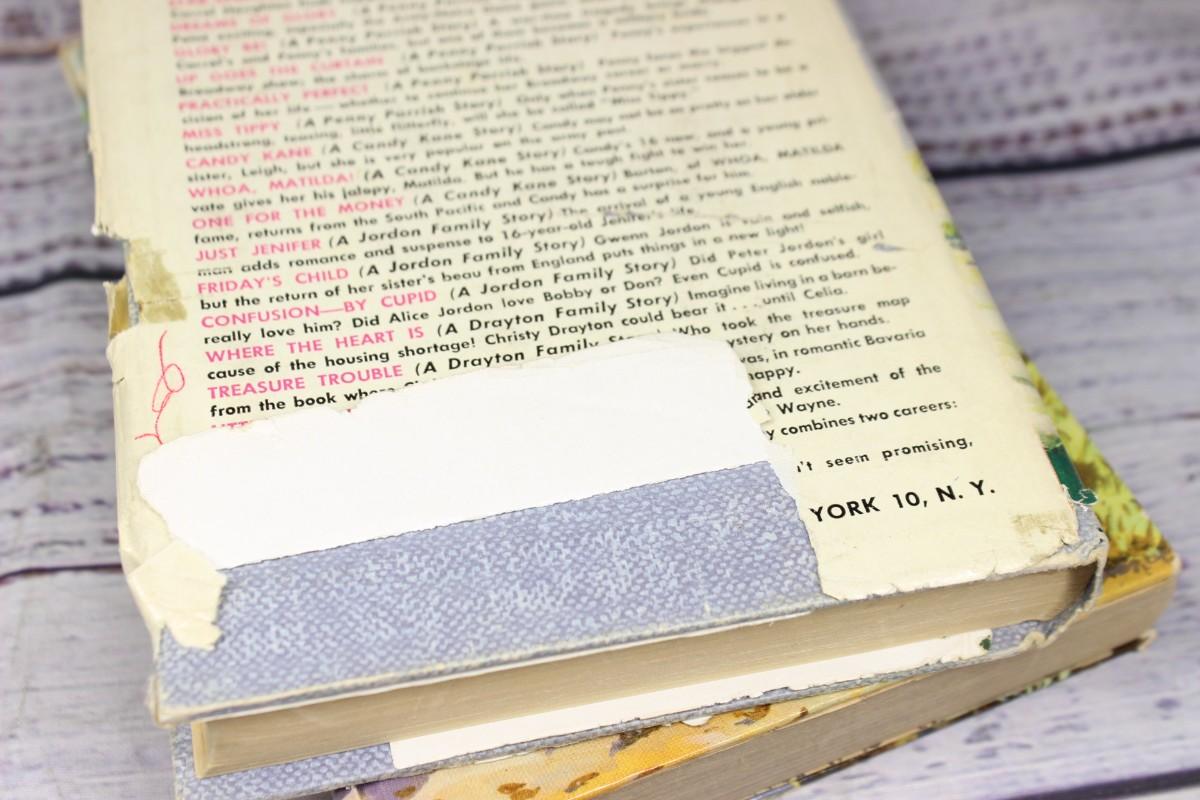 DREAMS OF GLORY (A Penny Parrish Story)
GLORY BE! (A Penny Parrish Story) Penny's
Carrol's and Penny's families, but
UP GOES THE CURTAIN (A Penny Parrish Story) Penny faces the biggest de-
Broadway show, the charm of backstage life.
PRACTICALLY PERFECT (A Penny Parrish Story)
sision of her life — whether to continue her Broadway career or marry.
MISS TIPPY (A Penny Parrish Story) Only when Penny's sister ceases to be a
headstrong, teasing, little flitterfly, will she be called "Miss Tippy."
CANDY KANE (A Candy Kane Story) Candy may not be as pretty as her older
sister, Leigh, but she is very popular on the army post.
WHOA, MATILDA! (A Candy Kane Story) Candy's 16 now, and a young pri-
vate gives her his jalopy, Matilda. But he has a tough fight to win her.
ONE FOR THE MONEY (A Candy Kane Story) Barton, of WHOA, MATILDA
fame, returns from the South Pacific and Candy has a surprise for him.
JUST JENIFER (A Jordon Family Story) The arrival of a young English noble-
man adds romance and suspense to 16-year-old Jenifer's life.
FRIDAY'S CHILD (A Jordon Family Story) Gwenn Jordon is vain and selfish,
but the return of her sister's beau from England puts things in a new light!
CONFUSION—BY CUPID (A Jordon Family Story) Did Peter Jordon's girl
really love him? Did Alice Jordon love Bobby or Don? Even Cupid is confused.
WHERE THE HEART IS (A Drayton Family Story) Imagine living in a barn be-
cause of the housing shortage! Christy Drayton could bear it . . . until Celia.
TREASURE TROUBLE (A Drayton Family Who took the treasure map
from the book where ystery on her hands.
vas, in romantic Bavaria
appy.
and excitement of the
Wayne.
y combines two careers:
n't seem promising,
YORK 10, N. Y.